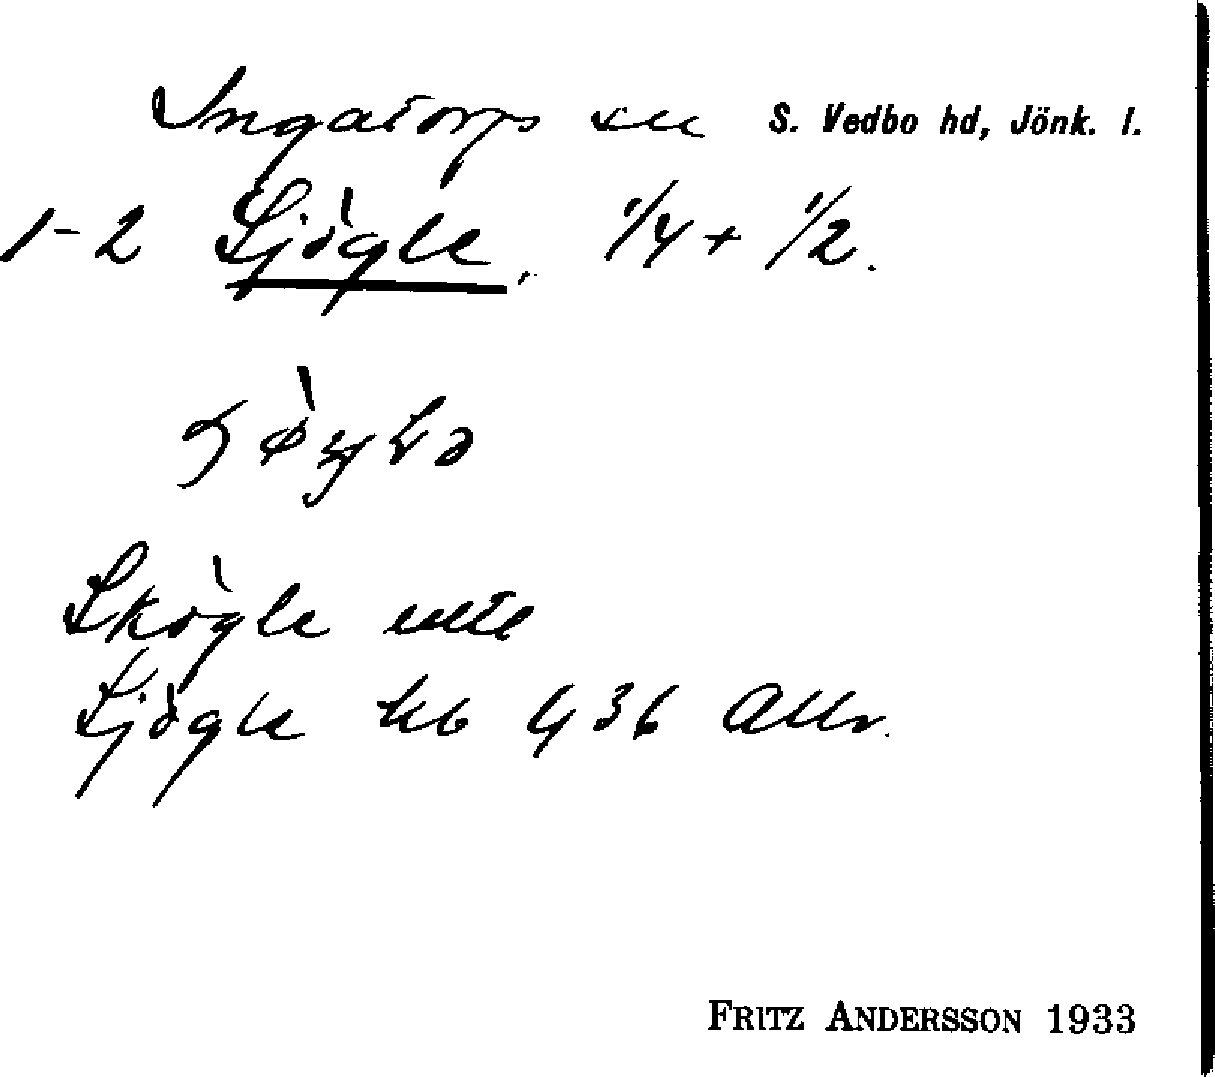 Ingatorps sn S. Vedbo hd, Jönk. l.
1-2 Sjögle, 1/4 + 1/2.
Skögle
Sjögle kb 436 Allm.
FRITZ ANDERSSON 1933